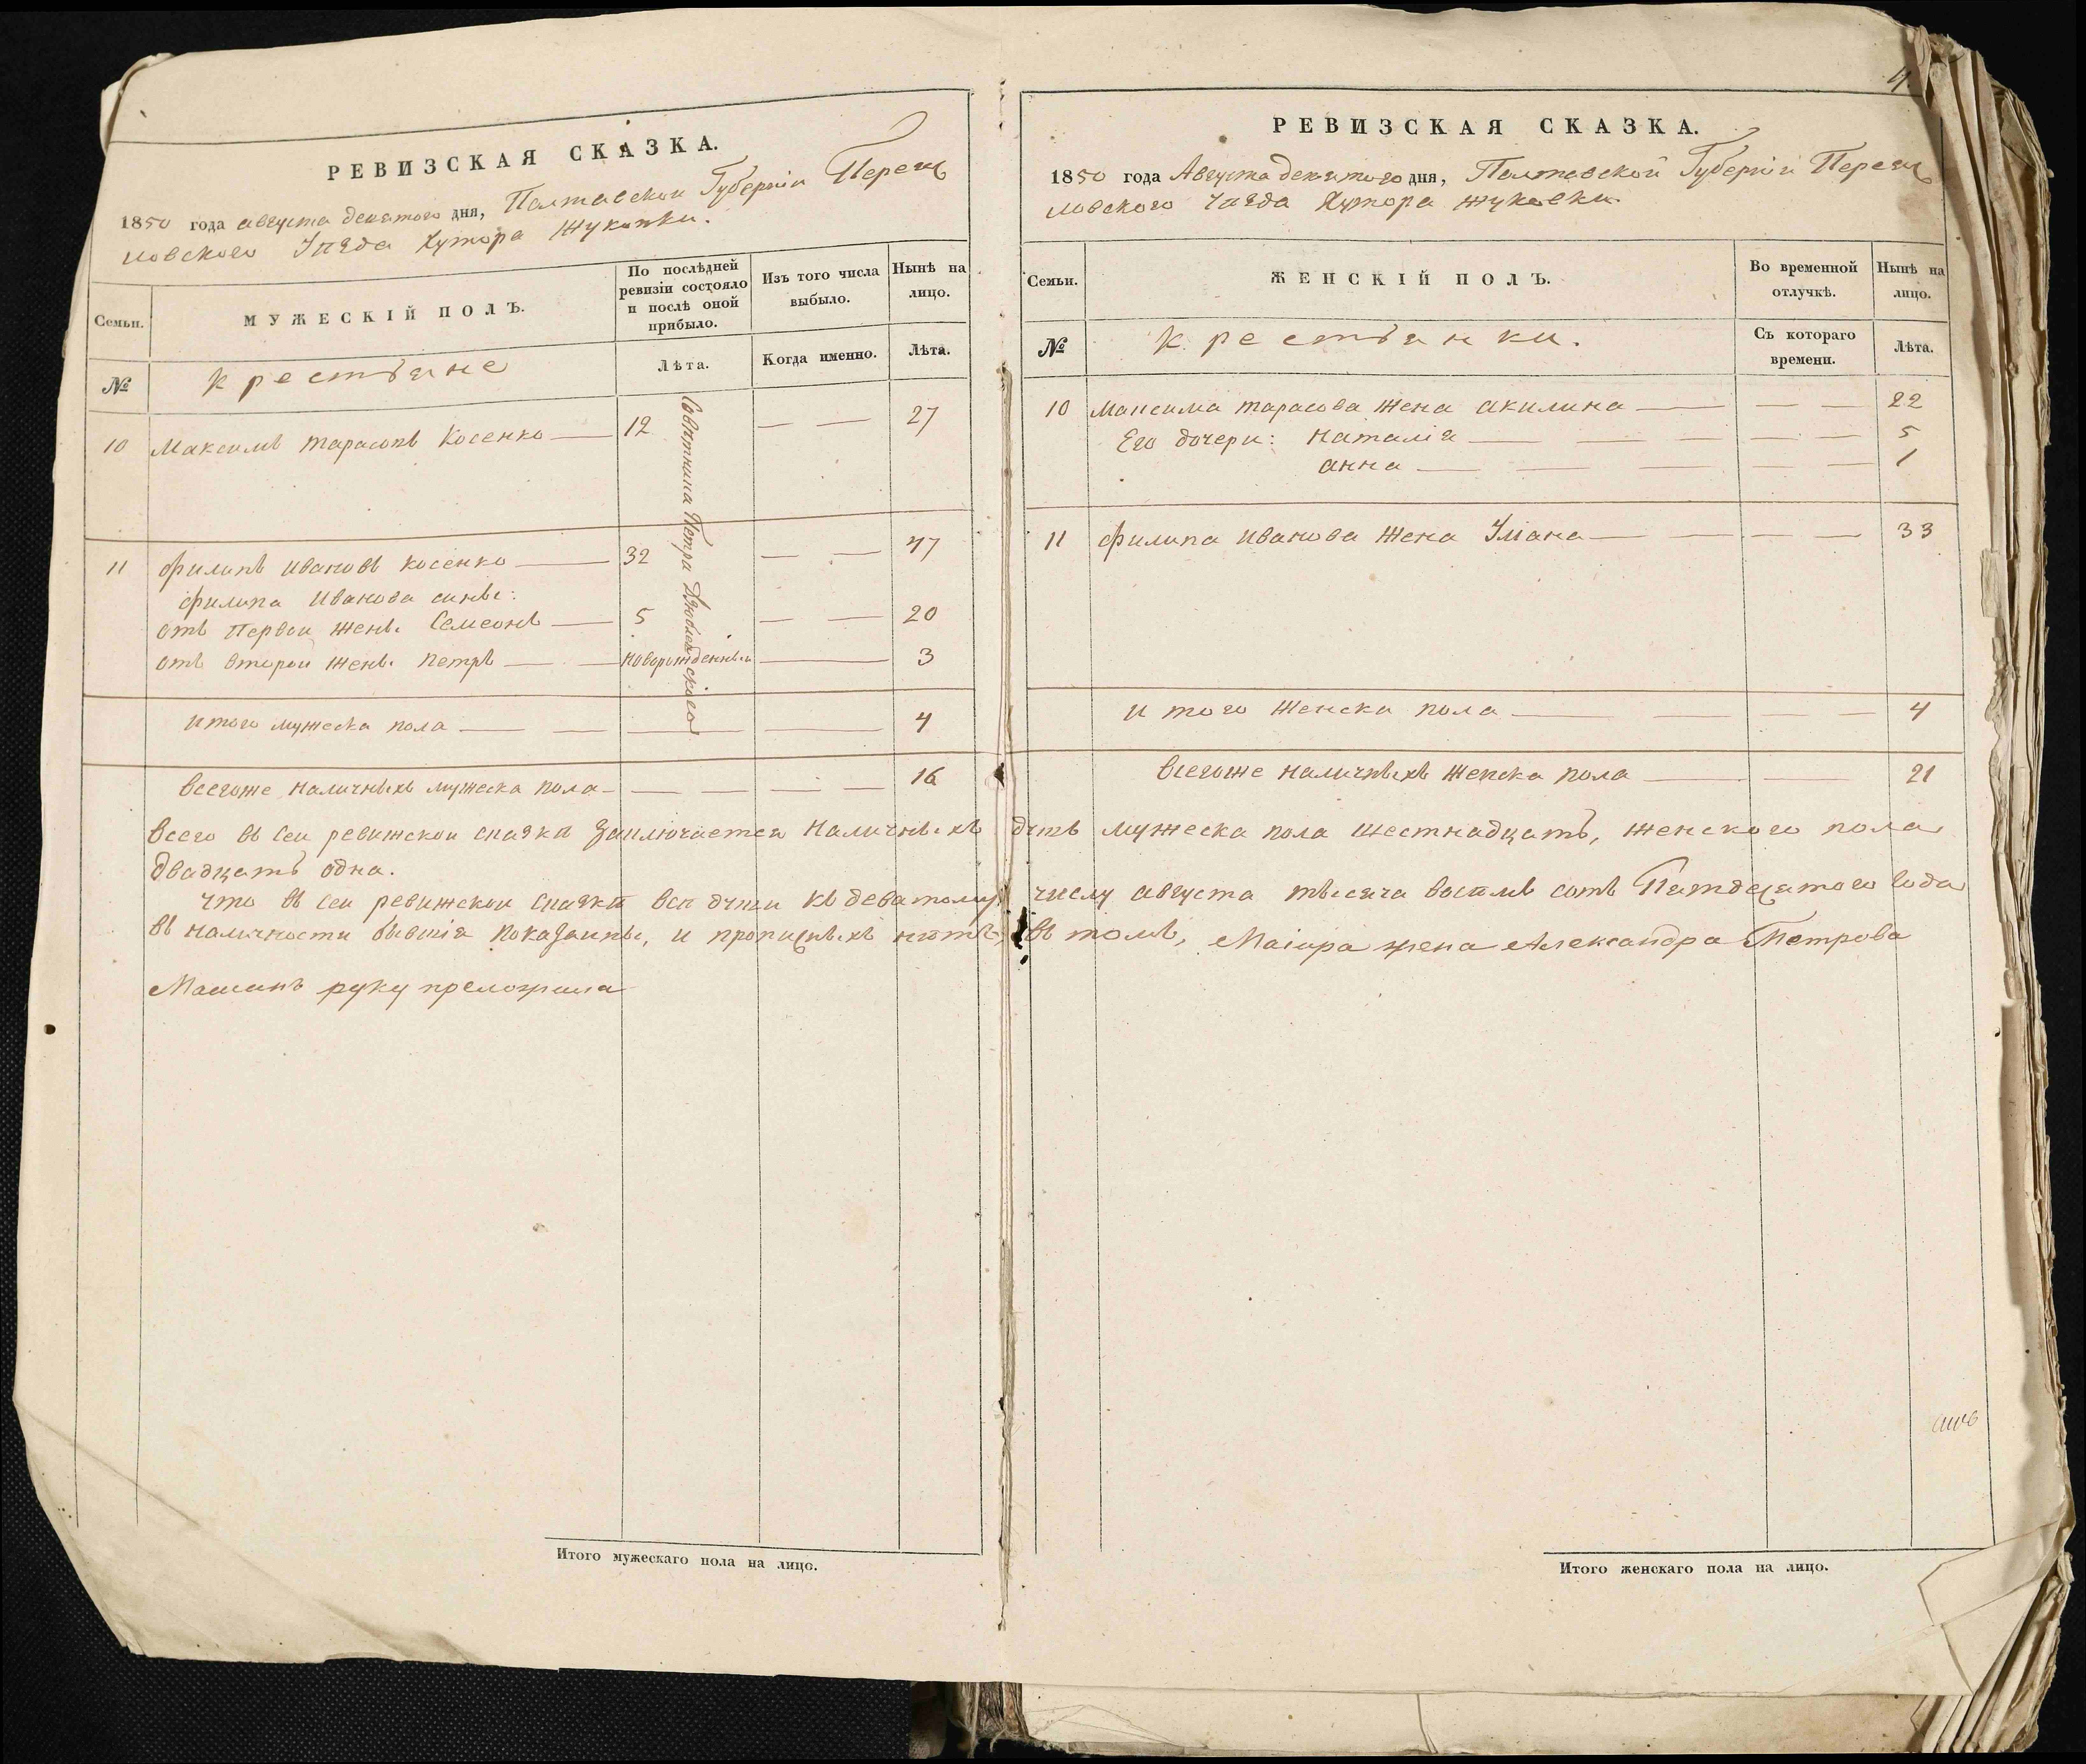 РЕВИЗСКАЯ СКАЗКА.
1850 года августа девятого дня, Полтавской Губернии Переяс
ловского Уѣзда Хутора Жуковки.
Семьи.
МУЖЕСКІЙ ПОЛЪ.
По послѣдней
ревизіи состояло
и послѣ оной
прибыло.
Изъ того числа
выбыло.
Нынѣ на
лицо.
№
крестьяне
Лѣта.
Когда именно.
Лѣта.
10 Максимъ Тарасовъ Косенко 12 27
Совѣтника Петра
11 Филипъ Ивановъ Косенко 32 47
Филипа Иванова сины:
отъ Первой жены Семеонъ 5 20
отъ второй жены Петръ новорожденный 3
итого мужеска пола 4
всегоже наличныхъ мужеска пола 16
РЕВИЗСКАЯ СКАЗКА.
1850 года Августа девятого дня, Полтавской Губерніи Переяс
ловского Уѣзда Хутора Жуковки.
Семьи.
ЖЕНСКІЙ ПОЛЪ.
Во временной
отлучкѣ.
Нынѣ на
лицо.
№
крестьянки.
Съ котораго
времени.
Лѣта.
10 Максима Тарасова жена Акилина 22
Его дочери: Наталія 5
Анна 1
11 Филипа Иванова Жена Уліана 33
итого Женска пола 4
всегоже наличныхъ женска пола 21
всего въ сей ревижской сказкѣ заключается Наличныхъ дутъ мужеска пола шестнадцать, женского пола
двадцать одна.
что въ сей ревижской сказкѣ все души къ девятому числу августа тысяча восемъ сотъ Пятдесятого года
въ наличности бывшія показанны, и прописныхъ нѣтъ, въ томъ, Маіора жена Александра Петрова
руку преложила
Итого мужескаго пола на лицо.
Итого женскаго пола на лицо.